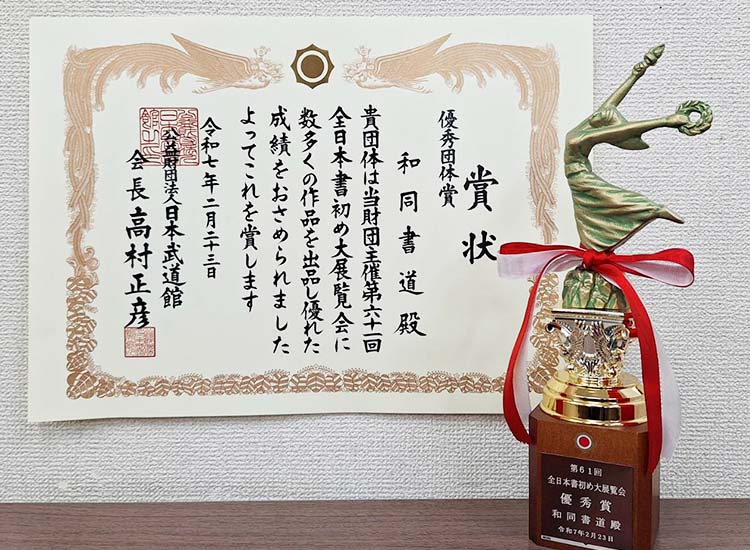 賞状
優秀団体賞
和同書道殿
貴団体は当財団主催第六十一回
全日本書初め大展覧会に
数多くの作品を出品し優れた
成績をおさめられました
よってこれを賞します
令和七年二月二十三日
公益財団法人日本武道館
会長高村正彦
第61回
全日本書初め大展覧会
優秀賞
和同書道殿
令和7年2月23日